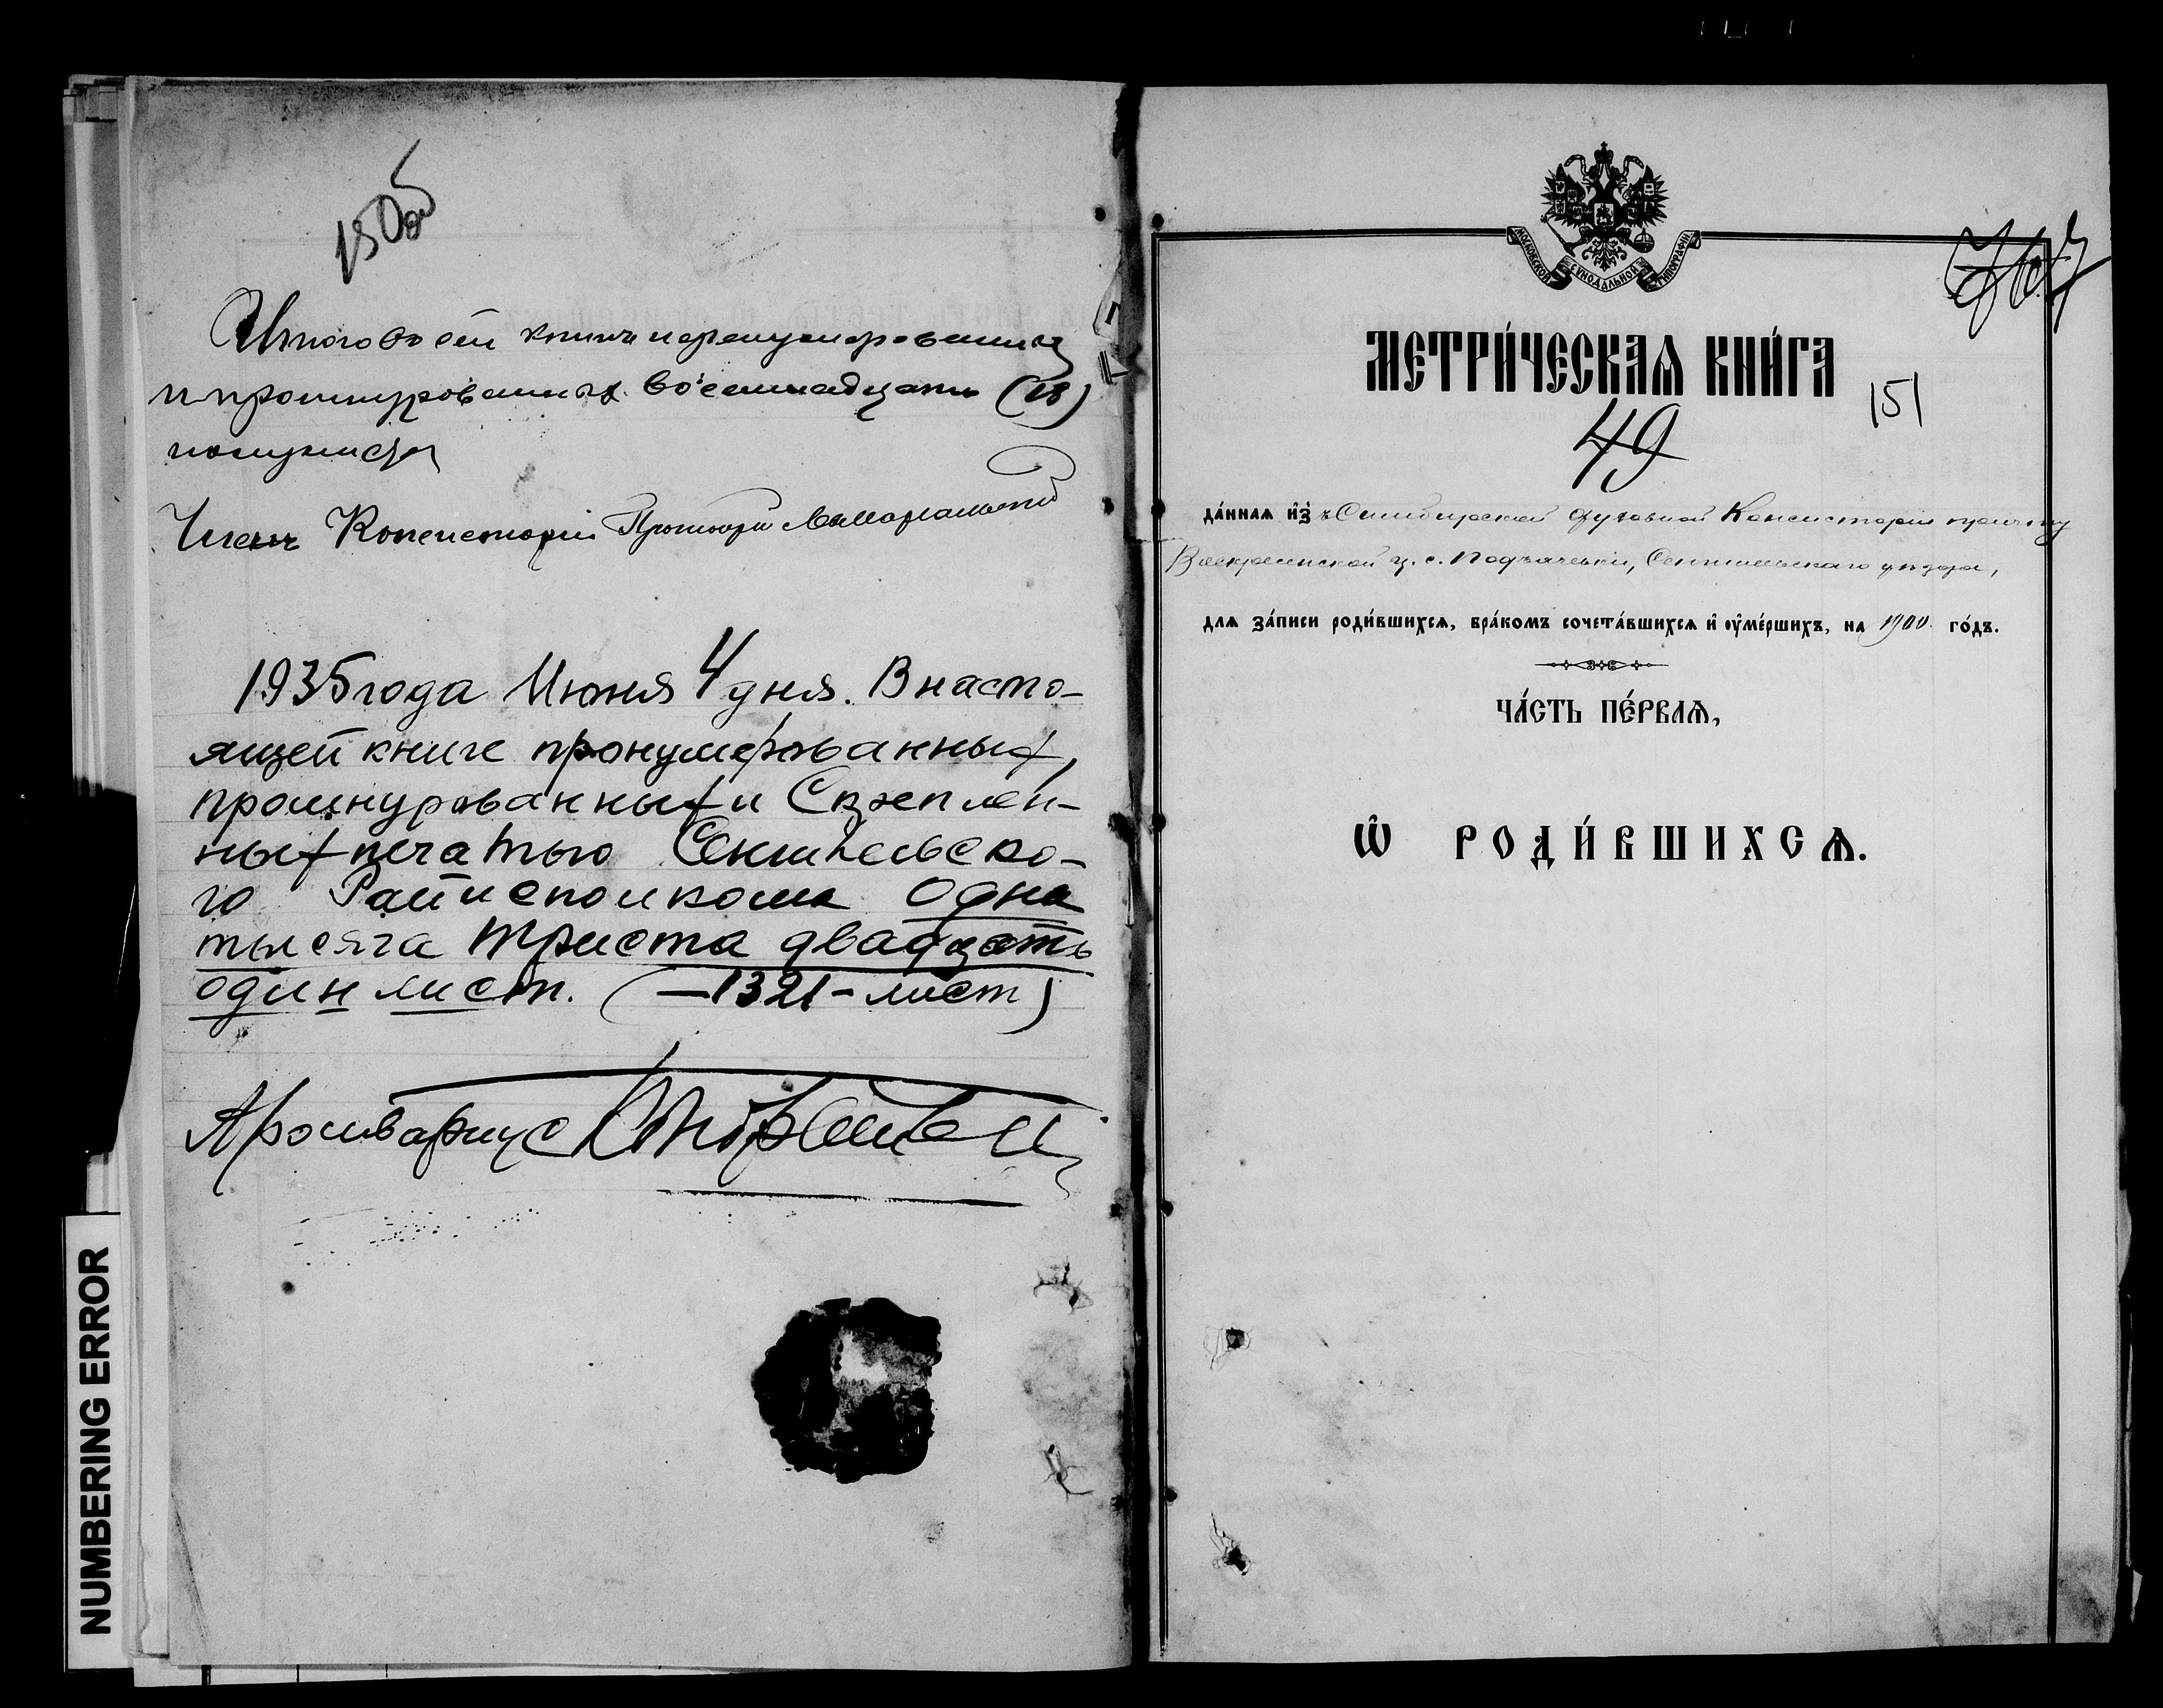 150об
Итого въ сей книге перенумерованныхъ
и прошнурованныхъ восемнадцать (18)
полулистовъ
Членъ Консисторіи Протоіерей
1935 года Июня 4 дня. В насто-
ящей книге пронумерованных,
прошнурованных и Скреплен-
ных печатью Сенгилеевско-
го Райисполкома Одна
тысяча триста двадцать
один лист. (—1321-лист)
Архивариус
NUMBERING ERROR
МОСКОВСКОЙ СѴНОДАЛЬНОЙ ТИПОГРАФІИ
МЕТРИ́ЧЕСКАѦ КНИ́ГА
151
49
да́ннаѧ и҆з̾ Симбирской Духовной Консисторіи причту
Воскресенской ц. с. Подъячевки, Сенгилеевскаго уѣзда,
длѧ за́писи роди́вшихсѧ, бра́комъ сочета́вшихсѧ и҆ ᲂу҆ме́ршихъ, на 1900 го́дъ.
ЧА́СТЬ ПЕ́РВАѦ,
Ѽ РОДИ́ВШИХСѦ.